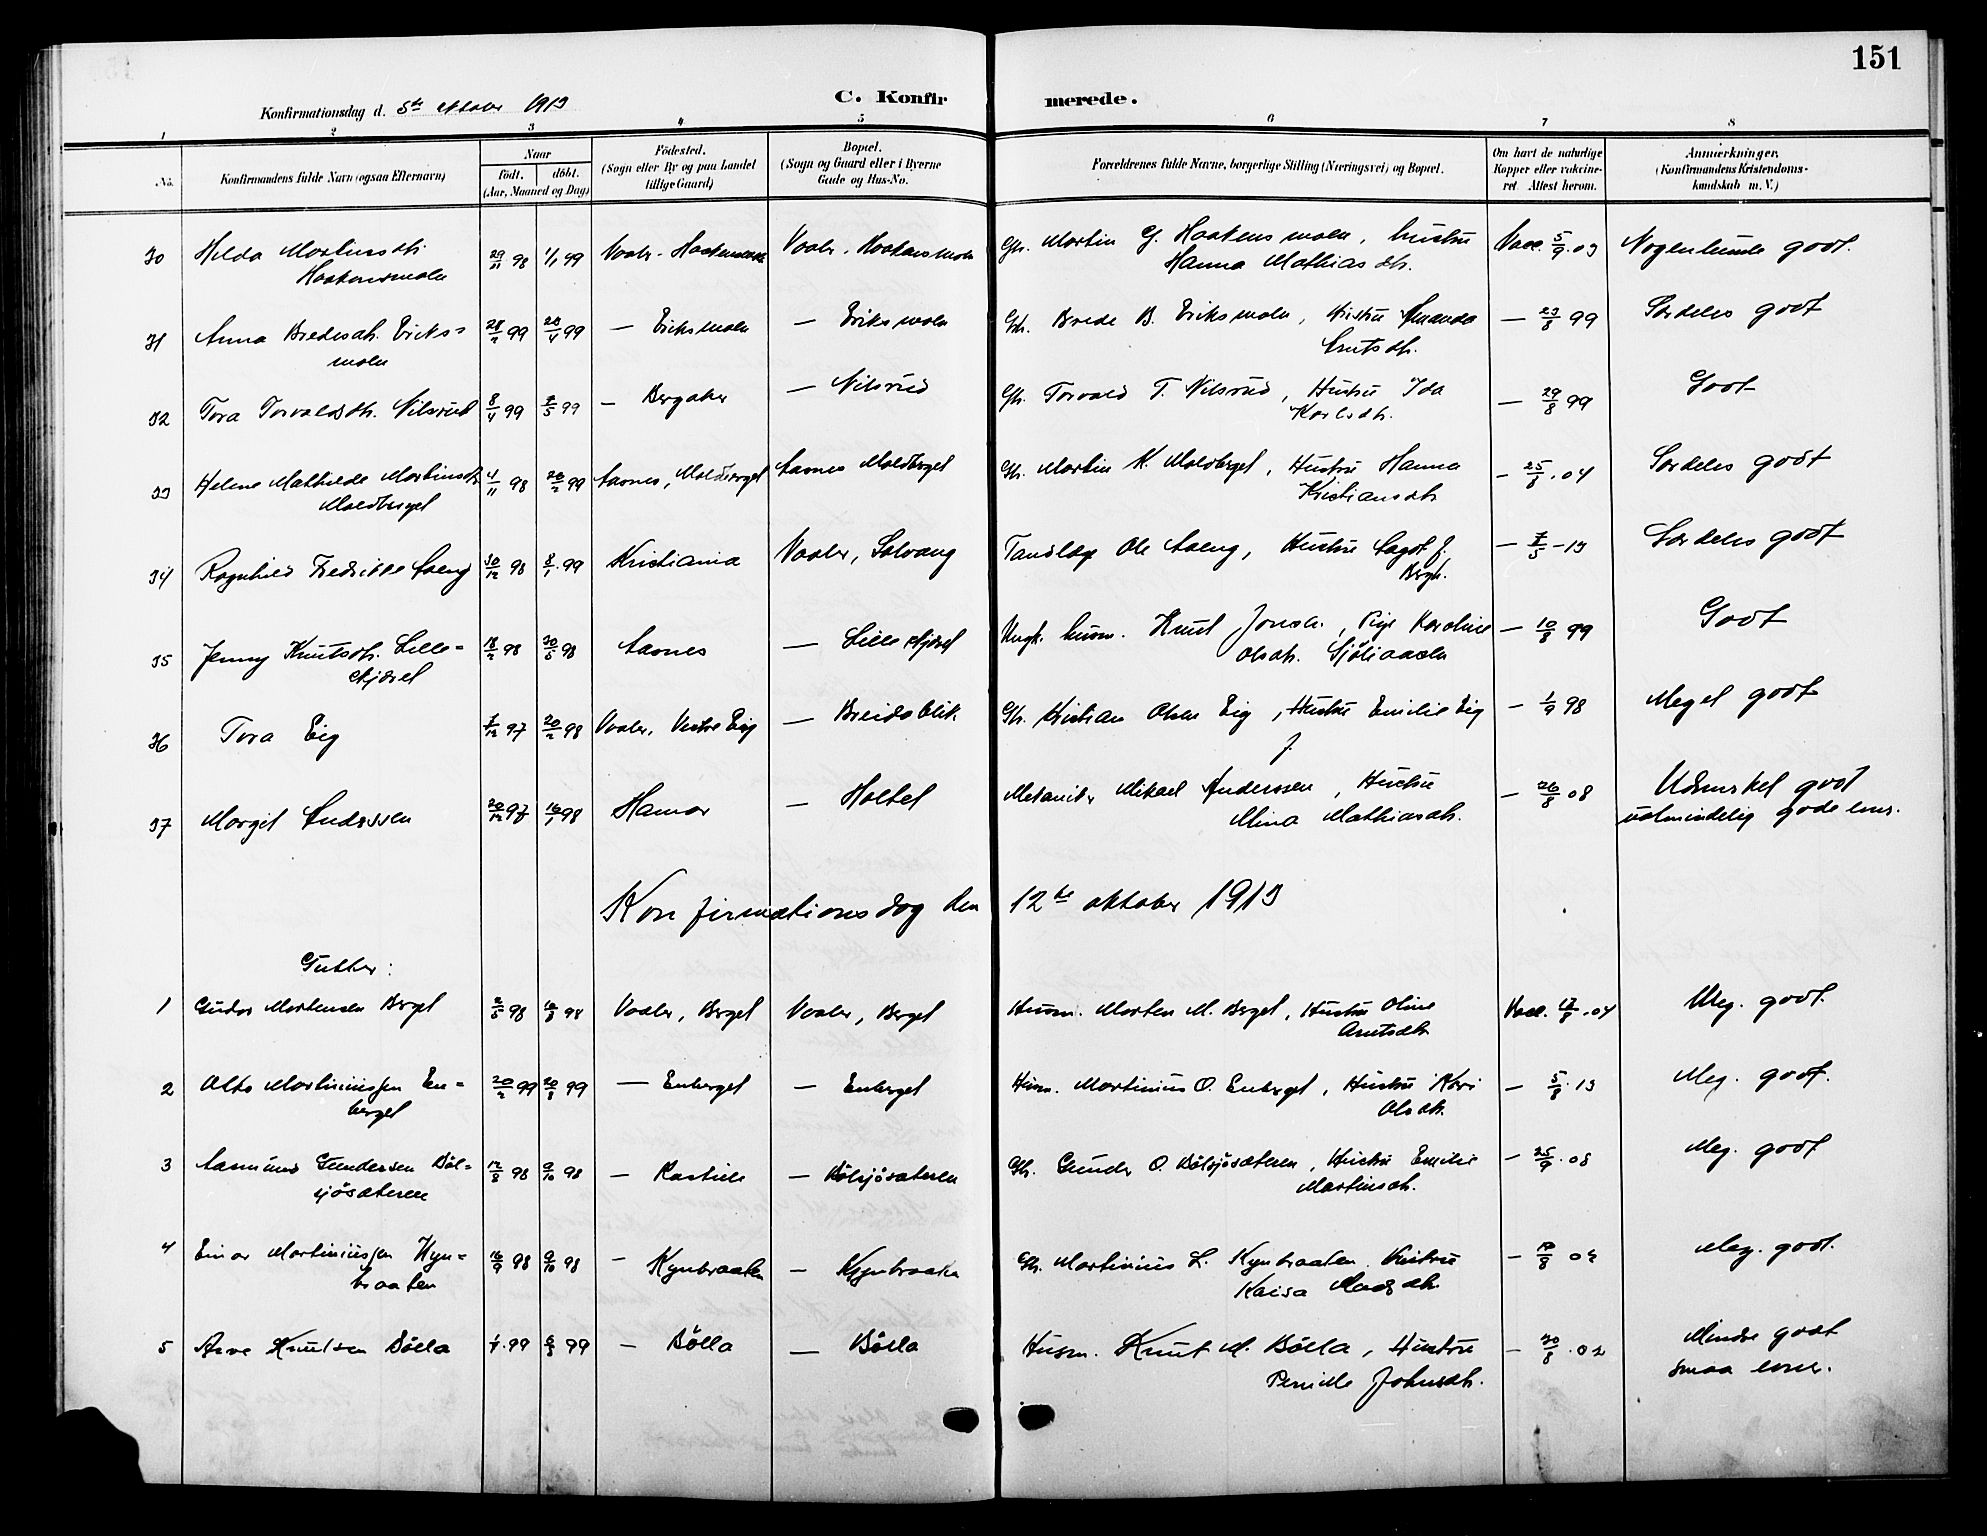 151
Konfirmationsdag d. 5te oktober 1913
C. Konfirmerede.
1 2 3 4 5 6 7 8
No.
Konfirmandens fulde Navn (ogsaa Efternavn)
Naar
født. døbt.
(Aar, Maaned og Dag)
Fødested.
(Sogn eller By og paa Landet
tillige Gaard)
Bopæl.
(Sogn og Gaard eller i Byerne
Gade og Hus-No.
Forældrenes fulde Navne, borgerlige Stilling (Næringsvei) og Bopæl.
Om havt de naturlige
Kopper eller vakcine-
ret Attest herom.
Anmærkninger.
(Konfirmandens Kristendoms-
kundskab m. V.)
30 Hilda Martinsdtr. 29/11 98 1/1 99 Vaaler - Haakensmoen Vaaler. Haakensmoen Gbr. Martin G. Haakensmoen, hustru Vacc. 5/9.03 Nogenlunde godt.
Haakensmoen Hanna Mathiasdtr.
31 Anna Bredesdtr. Eriks= 28/2 99 28/4 99 — Eriksmoen — Eriksmoen Gbr. Brede B. Eriksmoen, Hustru Amanda — 29/8 99 Særdeles godt
moen Knutsdtr.
32 Tora Torvaldsdtr. Nilsrud 8/4 99 7/5 99 — Bergaker — Nilsrud Gbr. Torvald T. Nilsrud, Hustru Ida — 29/8 99 Godt
Karlsdtr.
33 Helene Mathilde Martinsdtr. 4/11 98 20/2 99 Aasnes, Moldberget Aasnes Moldberget Gbr. Martin K. Moldberget, Hustru Hanna — 25/8.04 Særdeles godt
Moldberget Kristiansdtr
34 Ragnhild Fredrikke Aaeng 30/12 98 8/1.99 Kristiania Vaaler, Solvang Tandlæge Ole Aaeng, Hustru Aagot f. — 7/5 - 13 Særdeles godt
Bergh.
35 Jenny Knutsdtr. Lille= 18/2 98 30/5 98 Aasnes — Lilleskjæret Ungk. husm. Knut Jonsen, Pige Karoline — 10/8 99 Godt
skjæret Olsdtr. Sjøliaasen
36 Tora Eig 7/12 97 20/2 98 Vaaler, Vestre Eig — Breidablik Gbr. Kristian Olsen Eig, Hustru Emilie Eig — 1/9 98 Meget godt
f.
37 Margit Anderssen 20/12 97 16/1 98 Hamar — Holtet Mekaniker Mikael Anderssen, Hustru — 26/8 08 Udmerket godt
Mina Mathiasdtr. ualmindelig gode evner.
Konfirmationsdag den 12te oktober 1913
Gutter:
1 Gudar Mortensen Berget 2/5 98 12/8 98 Vaaler, Berget Vaaler, Berget Husm. Morten M. Berget, Hustru Oline Vacc. 17/8.04 Meg. godt.
Arntsdtr.
2 Alto Martiniussen En= 20/2 99 20/8 99 — Enberget — Enberget Husm. Martinius O. Enberget, Hustru Kari — 5/8.13 Meg. godt.
berget Olsdtr.
3 Aasmund Gundersen Bøl= 12/8 98 9/10 98 — — Bølsjøsæteren Gbr. Gunder O. Bølsjøsæteren, Hustru Emilie — 25/9.08 Meg. godt
sjøsæteren Martinsdtr.
4 Einar Martiniussen Kyn= 16/9 98 9/10 98 — Kynbraaten — Kynbraaten Gbr. Martinius L. Kynbraaten Hustru — 17/8 04 Meg. godt.
braaten Kaisa Madsdtr.
5 Arve Knutsen Bølla 1/4.99 6/8 99 — Bølla — Bølla Husm. Knut M. Bølla, Hustru — 30/8.02 Mindre godt
Pernille Johnsdtr. smaa evner.